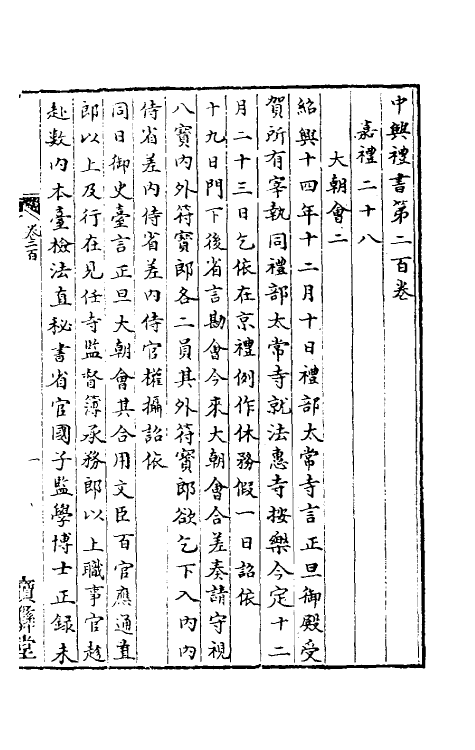 中興禮書第二百卷
嘉禮二十八
大朝會二
紹興十四年十二月十日禮部太常寺言正旦御殿受
賀所有宰執同禮部太常寺就法惠寺按樂今定十二
月二十三日乞依在京禮例作休務假一日詔依
十九日門下後省言勘會今來大朝會合差奏請守視
八寶內外符寶郎各二員其外符寶郎欲乞下入內內
侍省差內侍省差內侍官權攝詔依
同日御史臺言正旦大朝會其合用文臣百官應通直
郎以上及行在見任寺監督簿承務郎以上職事官趂
赴數內本臺檢法直秘書省官國子監學博士正錄未
卷二百
一
寶彝堂